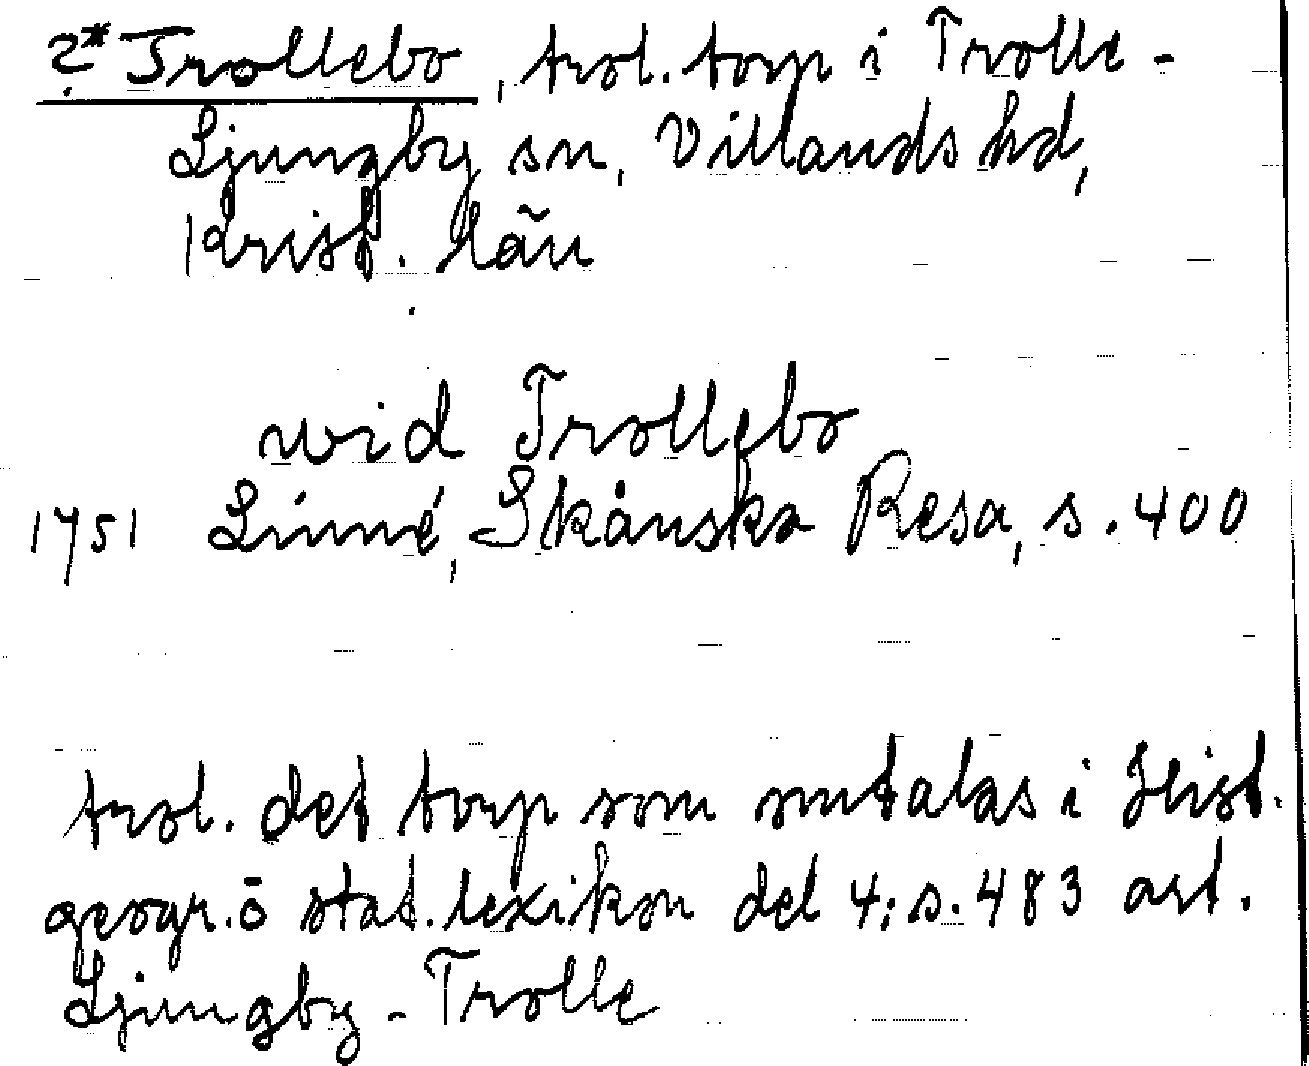 ?* Trollebo, trol. torp i Trolle-
Ljungby sn, Villands hd,
Krist. län
wid Trollebo
1751 Linné, Skånska Resa, s. 400
trol. det torp som omtalas i Hist.
geogr. o stat. lexikon del 4; s. 483 art.
Ljungby - Trolle